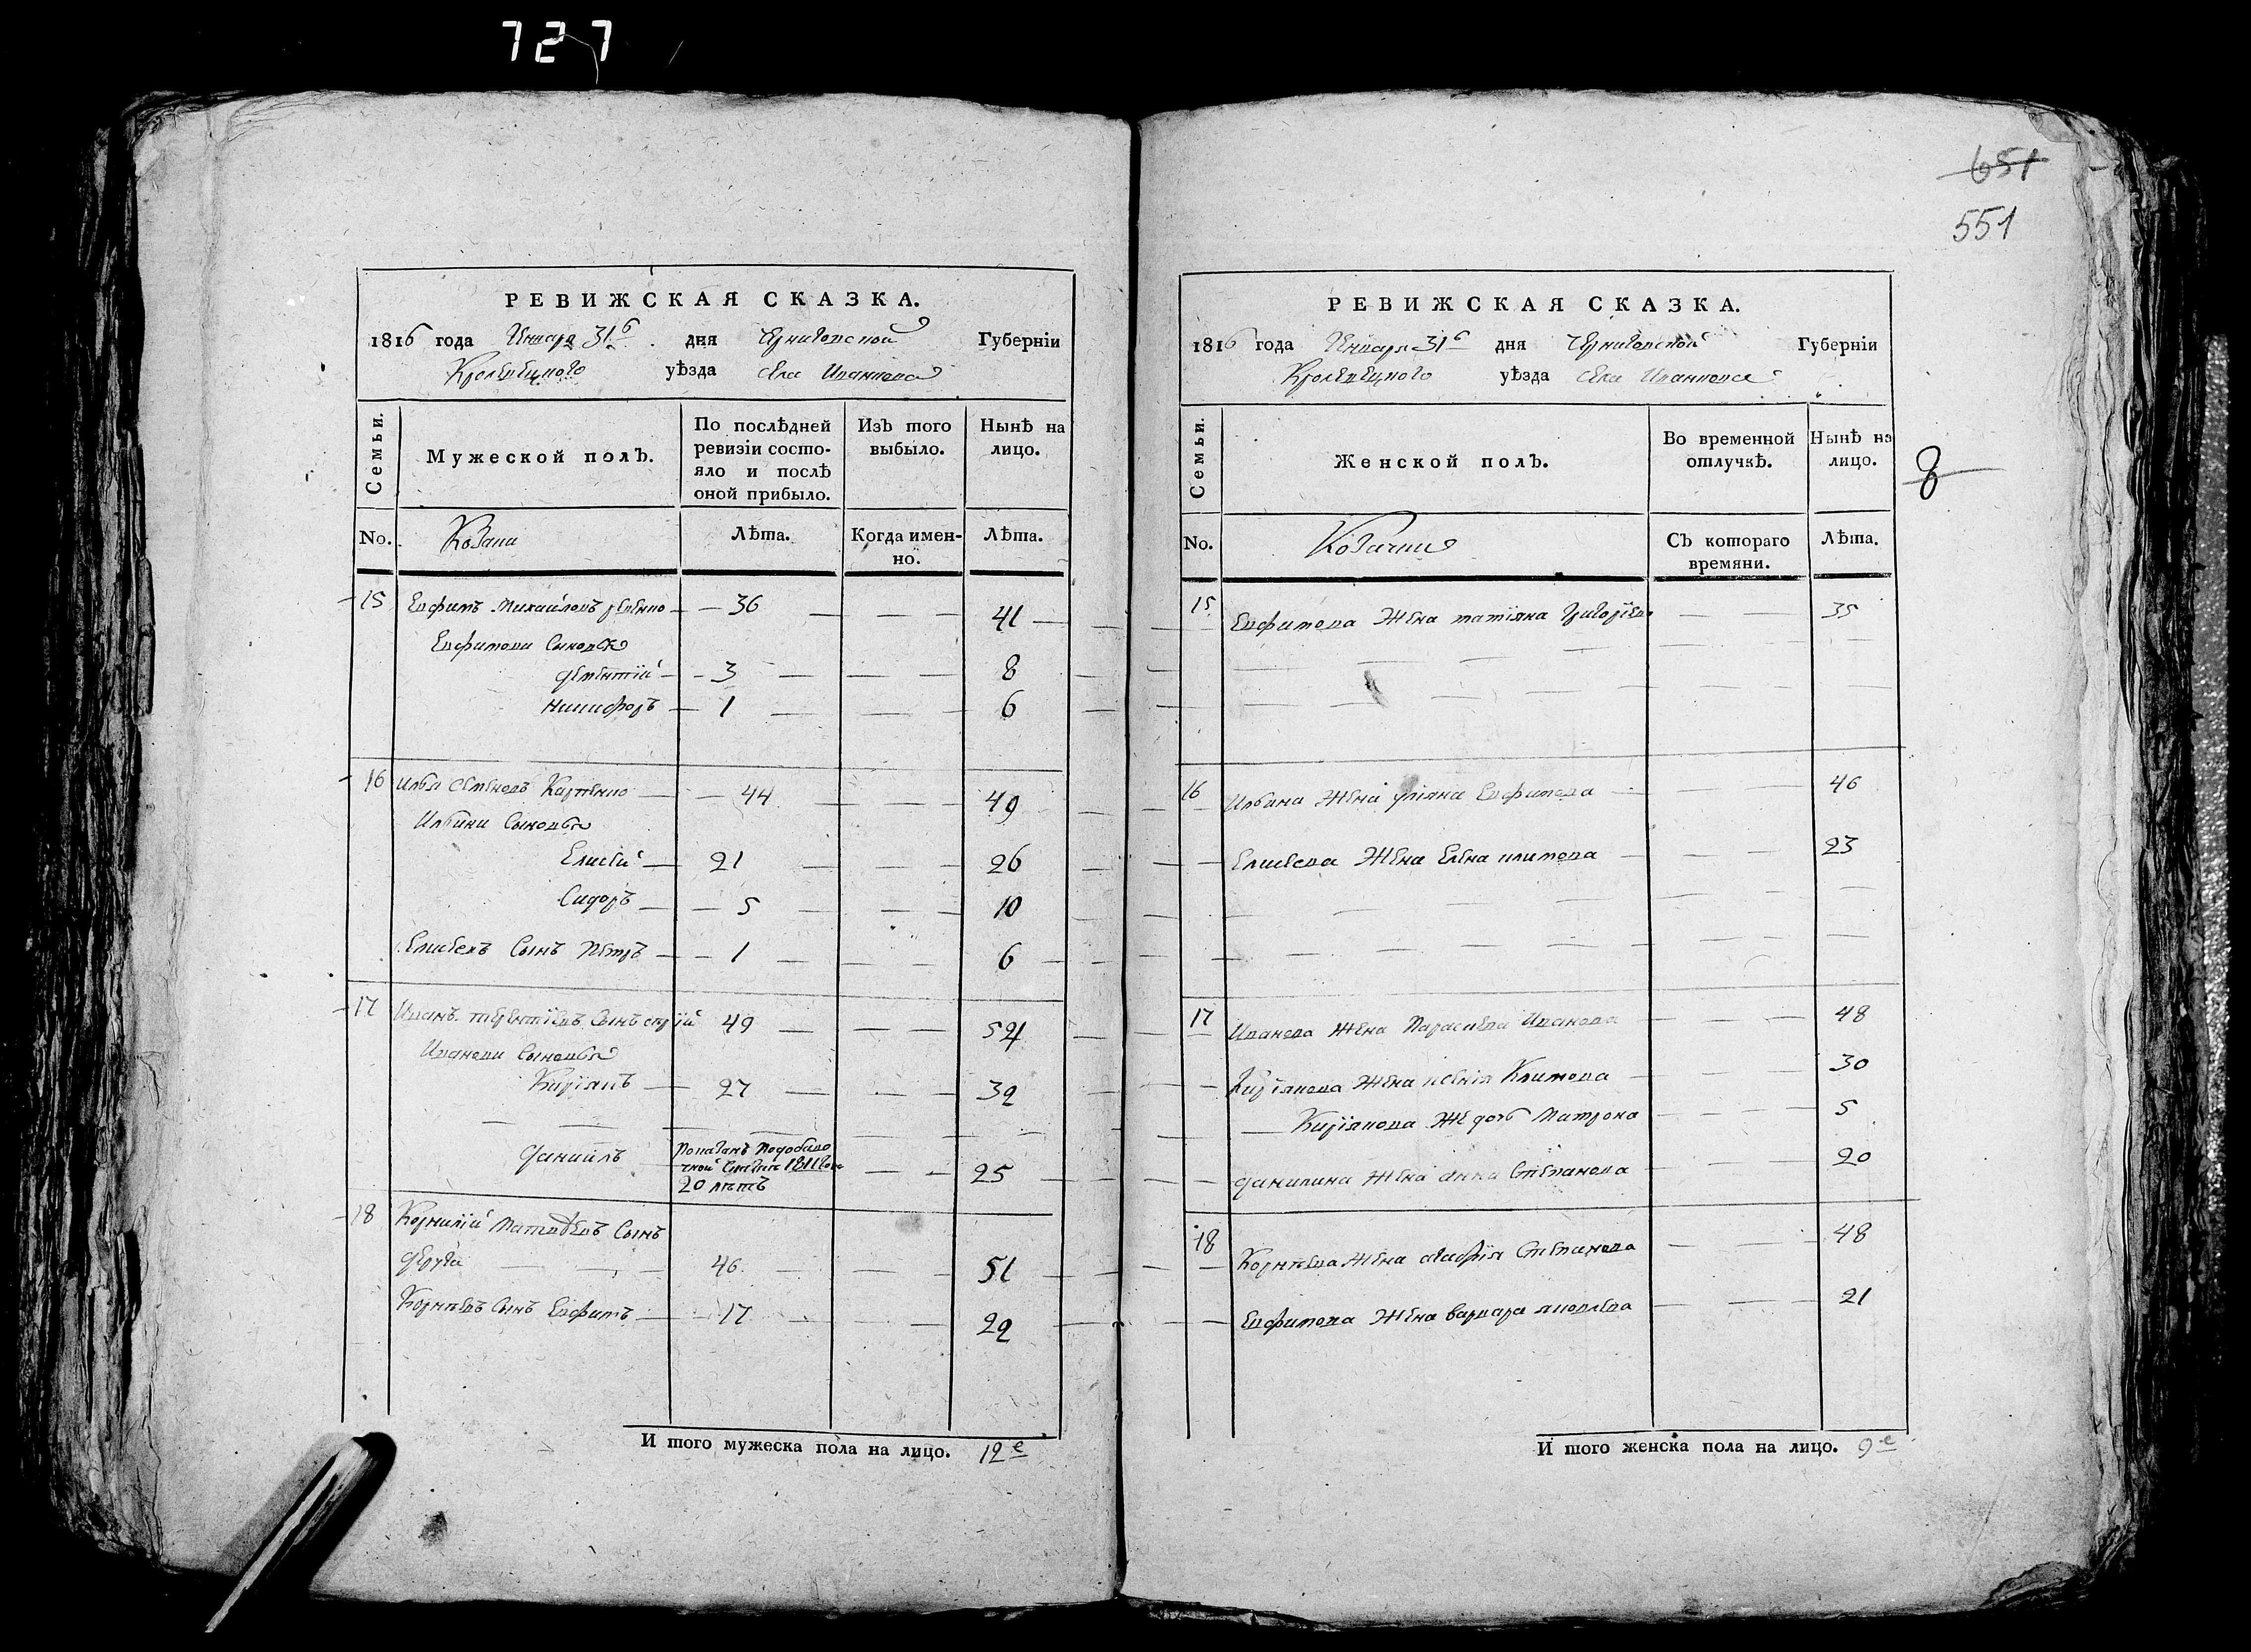 727
РЕВИЖСКАЯ СКАЗКА.
1816 года Января 31го дня Черниговской Губерніи
Кролевецкого уѣзда села Иванкова
Семьи. Мужеской полЪ. По послѣдней ревизіи состояло и послѣ оной прибыло. ИзЪ того выбыло. Нынѣ на лицо.
No. Козаки Лѣта. Когда именно. Лѣта.
15 Евфимъ Михайловъ 36 41
Евфимови Сыновья
Дементій 3 8
Никифоръ 1 6
16 Илья Семеновъ Карпенко 44 49
Ильини Сыновья
Елисей 21 26
Сидоръ 5 10
Елисеевъ Сынъ Петръ 1 6
17 Иванъ Терентіевъ Сынъ 49 54
Иванови Сыновья
Киріякъ 27 32
Даніилъ 1811 года 20 лѣтъ 25
18 Корнилій Матвѣевъ Сынъ
Деруга 46 51
Корнѣевъ Сынъ Евфимъ 17 22
И того мужеска пола на лицо. 12е
651
551
РЕВИЖСКАЯ СКАЗКА.
1816 года Января 31го дня Черниговской Губерніи
Кролевецкого уѣзда села Иванкова
Семьи. Женской полЪ. Во временной отлучкѣ. НынѣЪ на лицо.
8
No. Козачки СЪ котораго времяни. Лѣта.
15 Евфимова Жена Татіяна Григоріева 35
16 Ильина Жена Уліяна Евфимова 46
Елисеева Жена Елена Климова 23
17 Иванова Жена Параскева Иванова 48
Киріякова Жена Ксенія Климова 30
Киріякова Же дочь Матрона 5
Данилина Жена Анна Степанова 20
18 Корнѣева Жена Агафія Степанова 48
Евфимова Жена Варвара Яковлева 21
И того женска пола на лицо. 9е